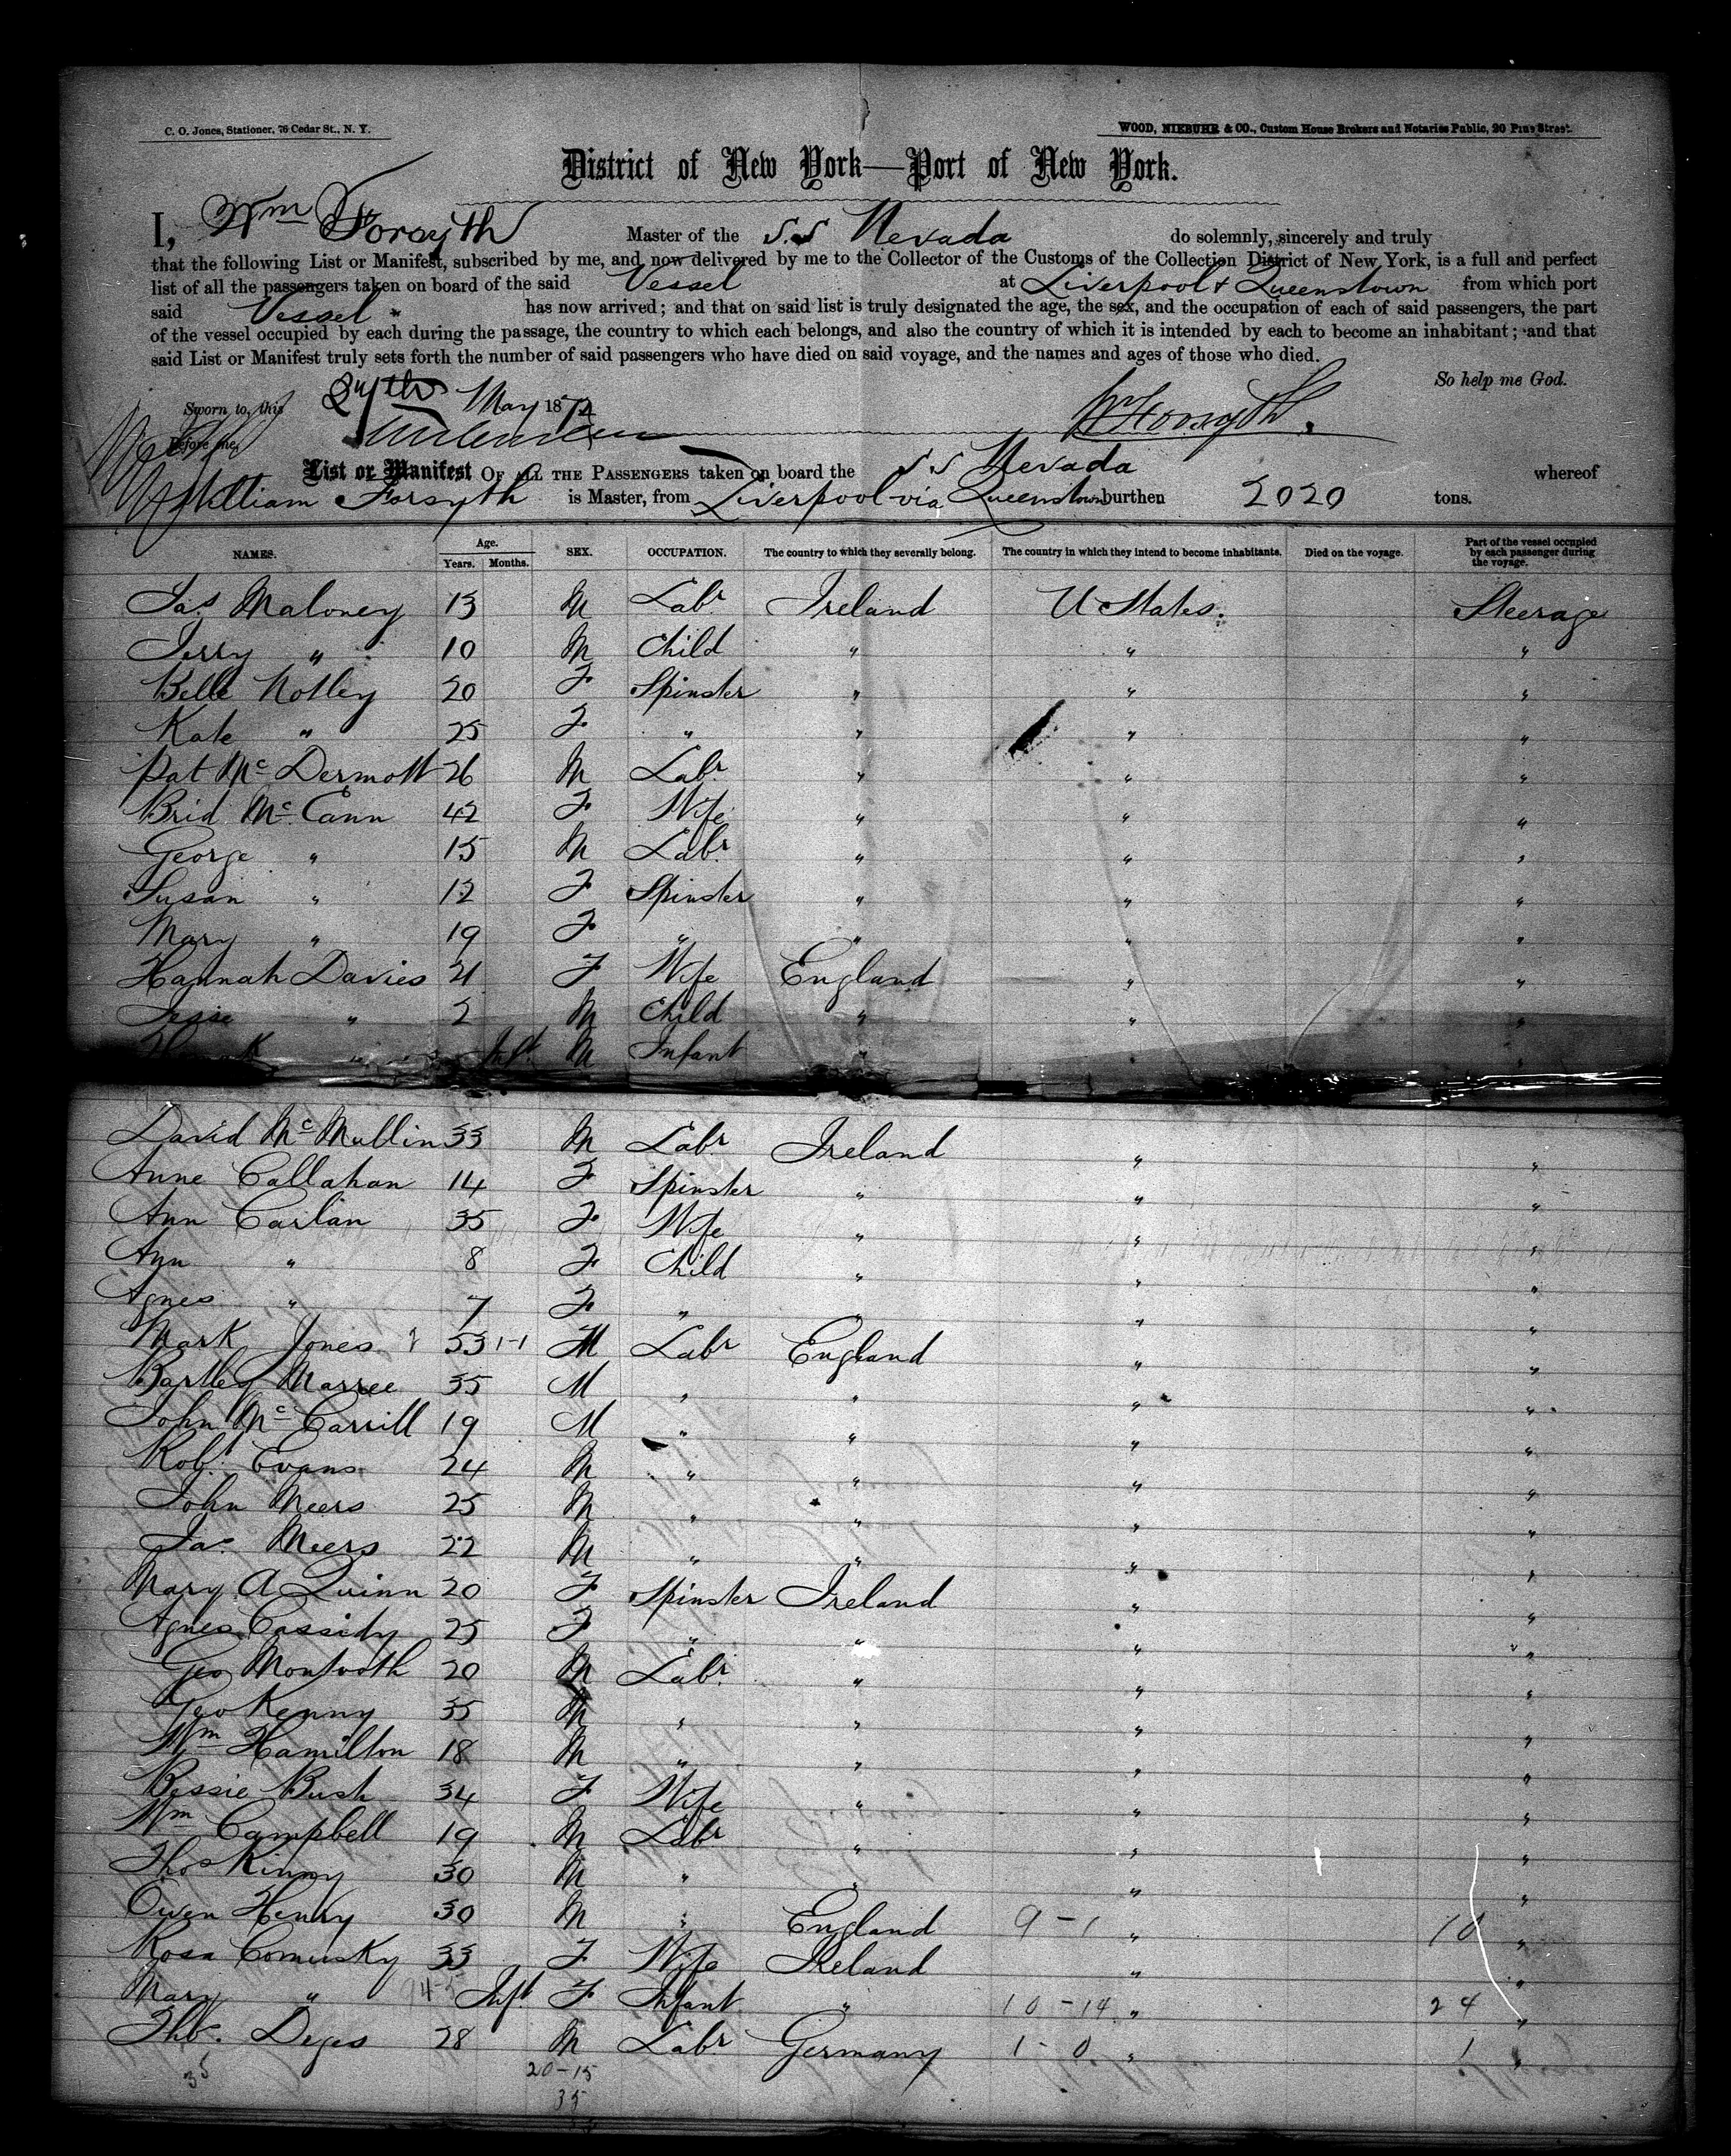 C. O. Jones, Stationer, 76 Cedar St., N. Y.
WOOD, NIEBUHR & CO., Custom House Brokers and Notaries Public, 20 Pine Street.
District of New York—Port of New York.
I, Wm Forsyth Master of the S.S Nevada do solemnly, sincerely and truly
that the following List or Manifest, subscribed by me, and now delivered by me to the Collector of the Customs of the Collection District of New York, is a full and perfect
list of all the passengers taken on board of the said Vessel at Liverpool & Queenstown from which port
said Vessel has now arrived; and that on said list is truly designated the age, the sex, and the occupation of each of said passengers, the part
of the vessel occupied by each during the passage, the country to which each belongs, and also the country of which it is intended by each to become an inhabitant; and that
said List or Manifest truly sets forth the number of said passengers who have died on said voyage, and the names and ages of those who died.
So help me God.
Sworn to, this 24th May 187
Wm Forsyth.
Before me,
List or Manifest OF ALL THE PASSENGERS taken on board the S S Nevada whereof
William Forsyth is Master, from Liverpool via Queenstown burthen 2020 tons.
NAMES. Age. Years. Months. SEX. OCCUPATION. The country to which they severally belong. The country in which they intend to become inhabitants. Died on the voyage. Part of the vessel occupied by each passenger during the voyage.
Jas Maloney 13 M Labr Ireland U States. Steerage
Jerry " 10 M Child " " "
Belle Notley 20 F Spinster " " "
Kate " 25 F " " " "
Pat McDermott 26 M Labr " " "
Brid McCann 42 F Wife " " "
George " 15 M Labr " " "
Susan " 12 F Spinster " " "
Mary " 19 F " " " "
Hannah Davies 21 F Wife England " "
Jesse " 2 M Child " " "
" Inft. M Infant " " "
David McMullin 33 M Labr Ireland " "
Anne Callahan 14 F Spinster " " "
Ann Carlan 35 F Wife " " "
Ann " 8 F Child " " "
Agnes " 7 F " " " "
Mark Jones 53 1-1 M Labr England " "
Bartley Marree 35 M " " " "
John McCarrill 19 M " " " "
Robt Evans 24 M " " " "
John Meers 25 M " " " "
Jas Meers 22 M " " " "
Mary A Quinn 20 F Spinster Ireland " "
Agnes Cassidy 25 F " " " "
Geo 20 M Labr " " "
Geo Kenny 35 M " " " "
Wm Hamilton 18 M " " " "
Bessie Bush 34 F Wife " " "
Wm Campbell 19 M Labr " " "
Thos Kinny 30 M " " " "
Owen Henry 30 M " England 9-1 " 10 "
Rosa Comusky 33 F Wife Ireland " "
Mary " 94-5 Inft F Infant " 10-14 " 24 "
Thos. Deges 28 M Labr Germany 1-0 " 1 "
35 20-15
35